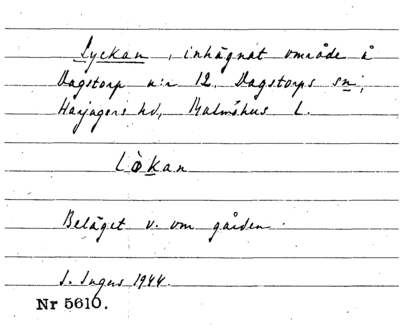 Lyckan, inhägnat område å
Dagstorp n:r 12, Dagstorps sn,
Harjagers hd, Malmöhus L.
Lòkan
Beläget v. om gården.
S. Ingers 1944.
Nr 5610.